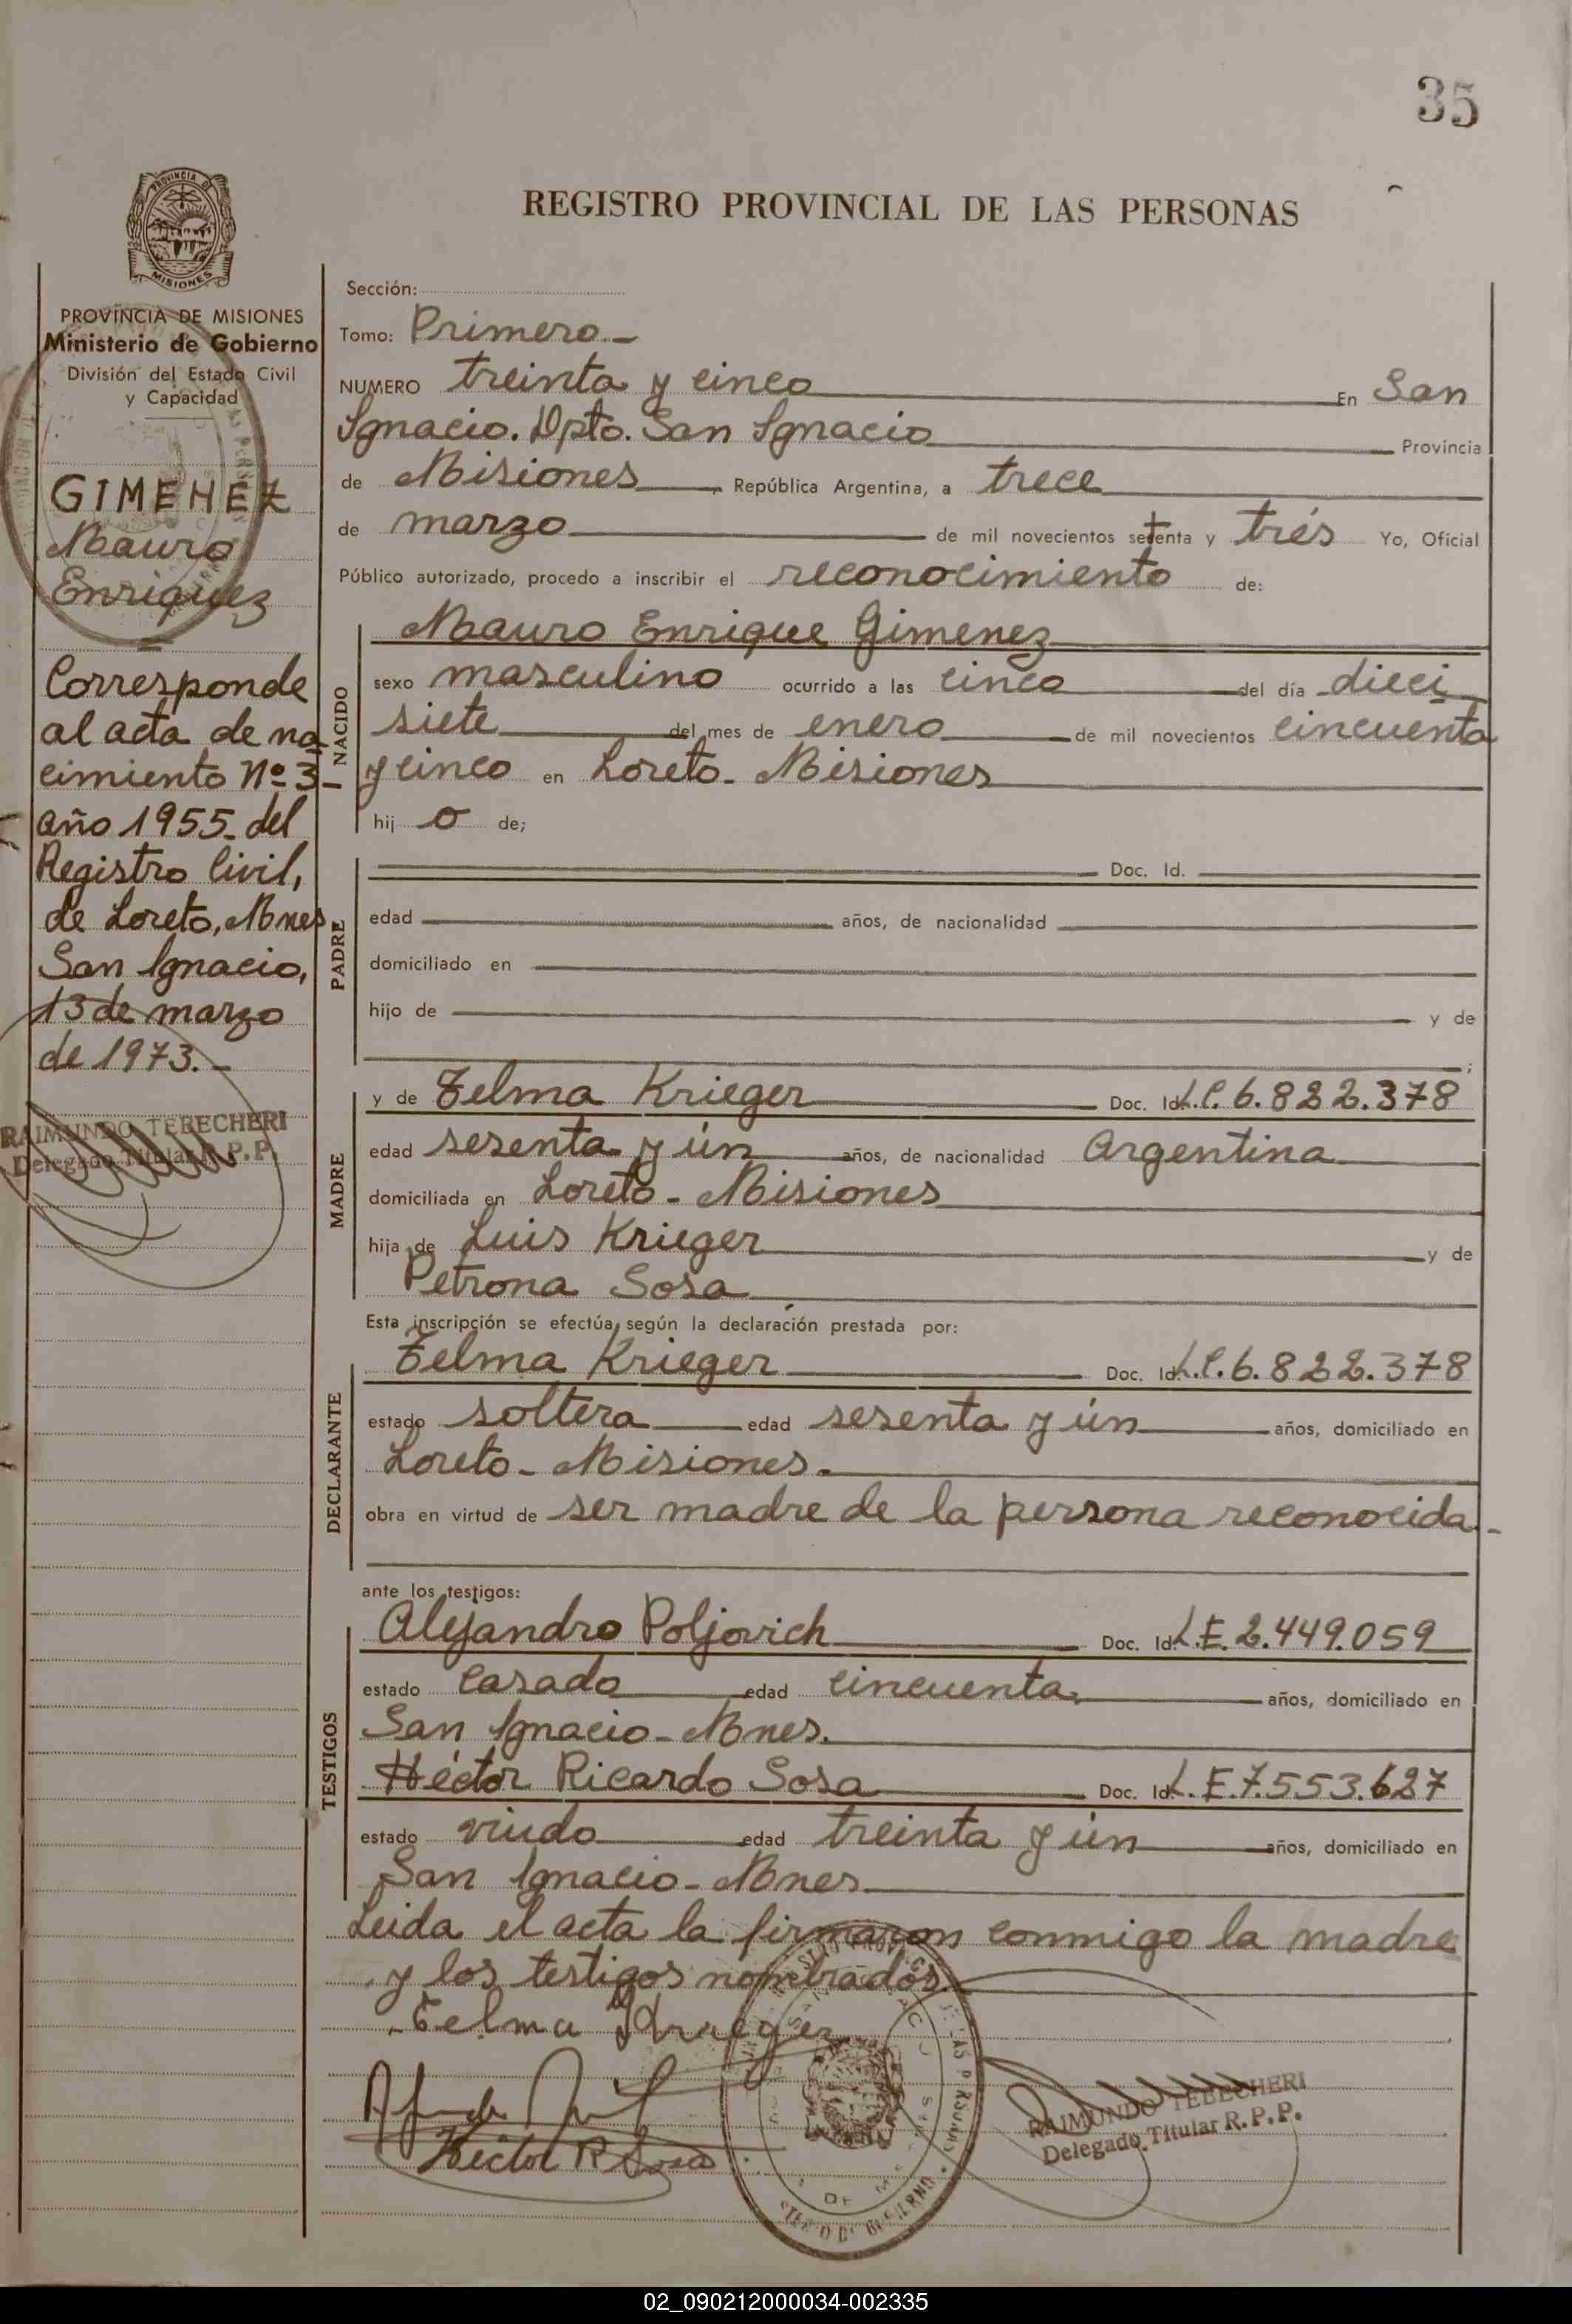 35
REGISTRO PROVINCIAL DE LAS PERSONAS
PROVINCIA DE MISIONES
Ministerio de Gobierno
División del Estado Civil
y Capacidad
GIMENEZ
Mauro
Enriquez
Corresponde
al acta de na
cimiento Nº 3-
año 1955- del
Registro Civil,
de Loreto, Mnes
San Ignacio,
13 de marzo
de 1973.-
RAIMUNDO TEBECHERI
Delegado Titular R.P.P.
Sección:
Tomo: Primero.-
NUMERO treinta y cinco En San
Ignacio. Dpto. San Ignacio Provincia
de Misiones, República Argentina, a trece
de marzo de mil novecientos setenta y trés Yo, Oficial
Público autorizado, procedo a inscribir el reconocimiento de:
NACIDO
Mauro Enrique Gimenez
sexo masculino ocurrido a las cinco del día dieci
siete del mes de enero de mil novecientos cincuenta
y cinco en Loreto- Misiones
hij o de;
PADRE
Doc. Id.
edad años, de nacionalidad
domiciliado en
hijo de y de
;
MADRE
y de Telma Krieger Doc. Id. L.C. 6.822.378
edad sesenta y ún años, de nacionalidad Argentina
domiciliada en Loreto- Misiones
hija de Luis Krieger y de
Petrona Sosa
Esta inscripción se efectúa según la declaración prestada por:
DECLARANTE
Telma Krieger Doc. Id. L.C. 6.822.378
estado soltera edad sesenta y ún años, domiciliado en
Loreto- Misiones.
obra en virtud de ser madre de la persona reconocida.-
ante los testigos:
TESTIGOS
Alejandro Poljovich Doc. Id. L.E. 2.449.059
estado casado edad cincuenta años, domiciliado en
San Ignacio- Mnes.
Héctor Ricardo Sosa Doc. Id. L.E. 7.553.627
estado viudo edad treinta y ún años, domiciliado en
San Ignacio- Mnes
Leida el acta la firmaron conmigo la madre
y los testigos nombrados.
Telma Krieger
Héctor R Sosa
RAIMUNDO TEBECHERI
Delegado Titular R.P.P.
02_090212000034-002335